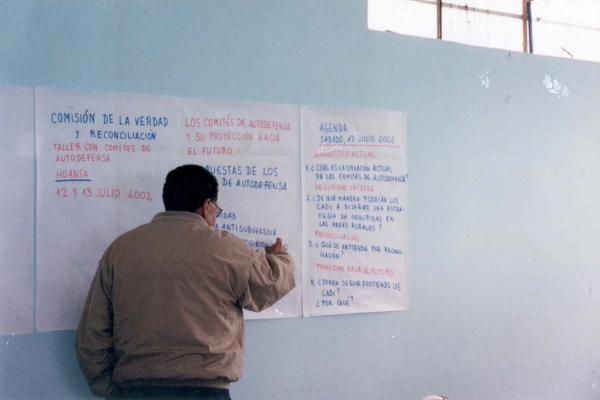 COMISIÓN DE LA VERDAD
Y RECONCILIACIÓN
TALLER CON COMITÉS DE
AUTODEFENSA
HUANTA
12 Y 13 JULIO 2002
LOS COMITÉS DE AUTODEFENSA
Y SU PROYECCIÓN HACIA
EL FUTURO
PUESTAS DE LOS
DE AUTODEFENSA
ANTISUBVERSIVA
AGENDA
SABADO, 13 JULIO 2002
DIAGNOSTICO ACTUAL
1. ¿CUAL ES LA SITUACIÓN ACTUAL
DE LOS COMITÉS DE AUTODEFENSA?
SEGURIDAD INTERNA
2. ¿DE QUE MANERA PODRÍAN LOS
CADs A DISEÑAR UNA ESTRA-
TEGIA DE SEGURIDAD EN
LAS AREAS RURALES?
RECONCILIACIÓN
3. ¿QUÉ SE ENTIENDE POR RECONCI-
LIACIÓN?
PROYECCION HACIA EL FUTURO
4. ¿DEBEN SEGUIR EXISTIENDO LOS
CADs?
¿POR QUÉ?